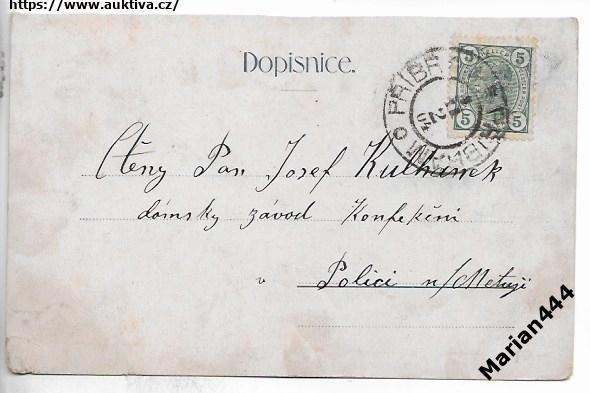 https://www.auktiva.cz/
Dopisnice.
5 5
5 5
PŘIBRAM
Ctěny Pan Josef Kulhanek
dámsky závod Konfekční
v Polici n/Metují
Marian444